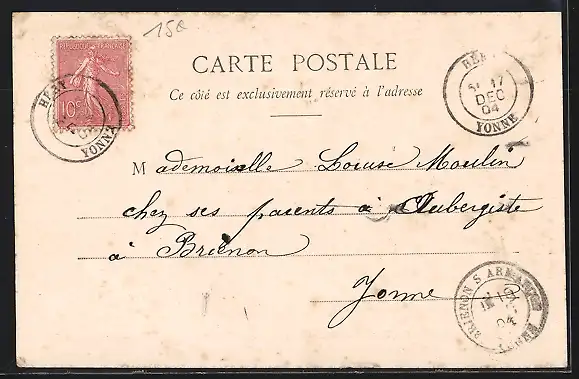 150
REPUBLIQUE FRANÇAISE
10c
HÉRY
YONNE
CARTE POSTALE
Ce côté est exclusivement réservé à l'adresse
17
DEC
04
YONNE
Mademoiselle Louise Moulin
chez ses parents à Aubergiste
à Brienon
Yonne
BRIENON S ARMANÇON
04
YONNE